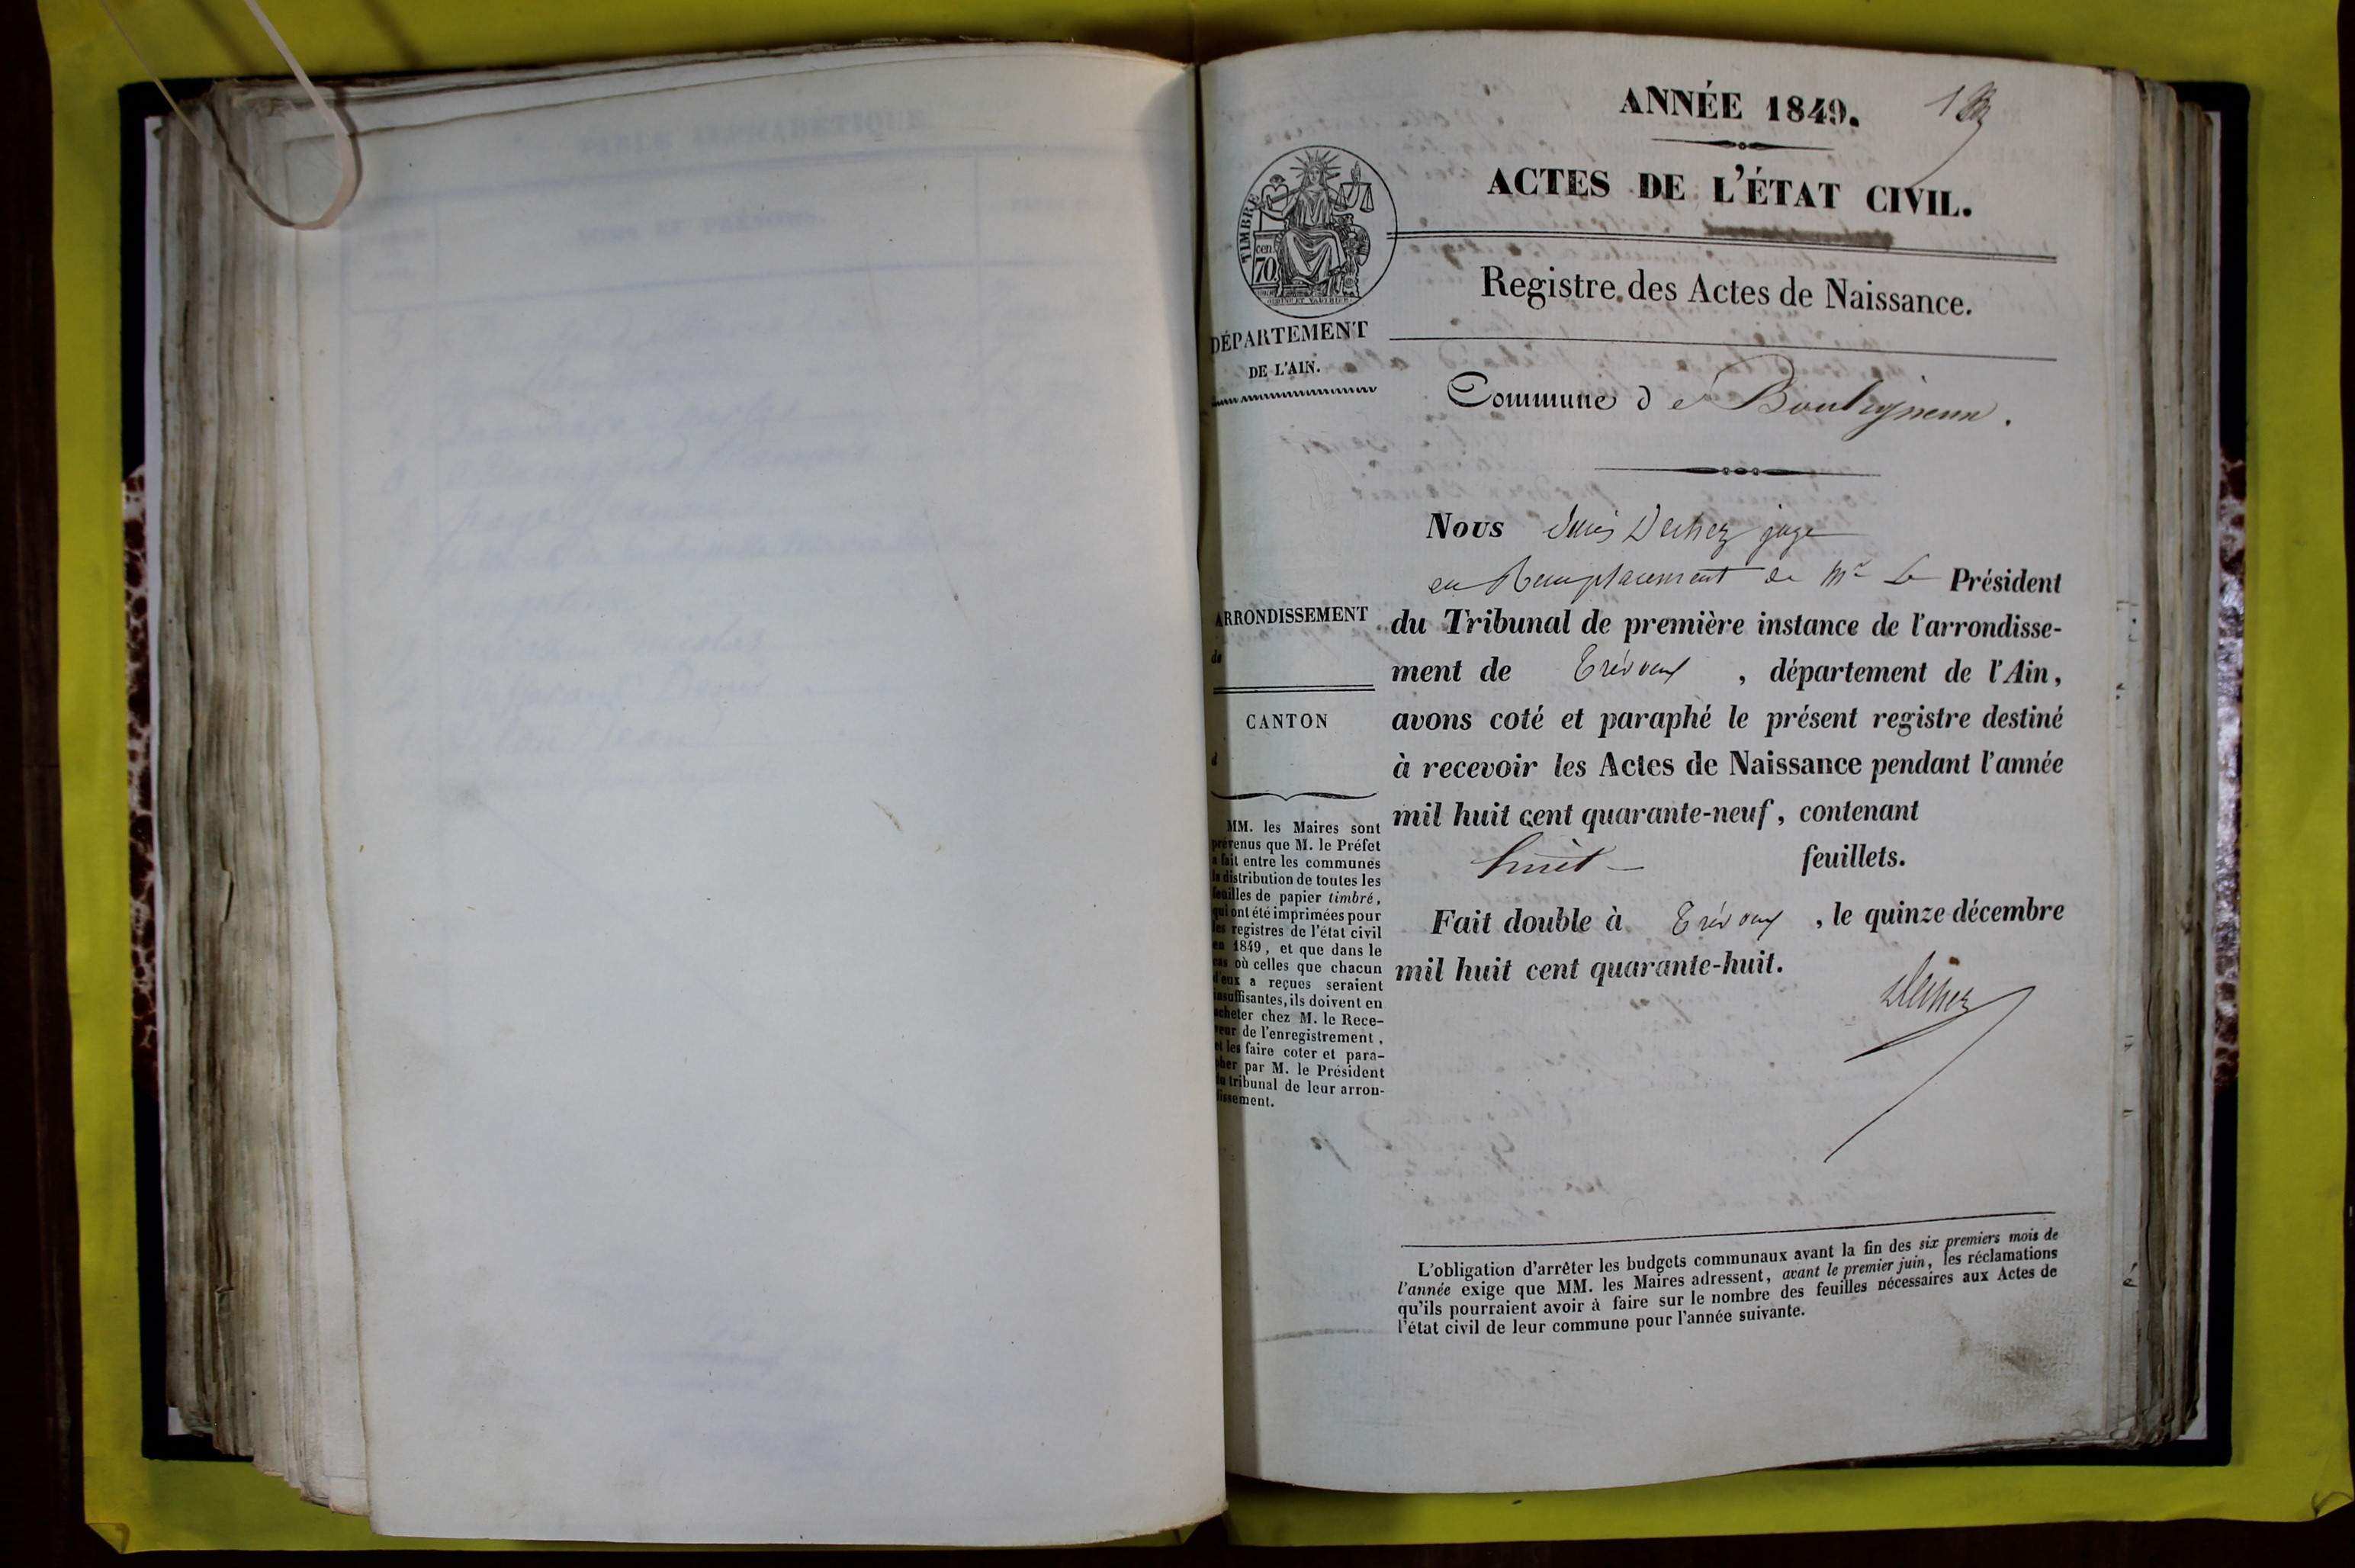 ANNÉE 1849.
ACTES DE L'ÉTAT CIVIL.
Registre des Actes de Naissance.
TIMBRE
cen
70
DÉPARTEMENT
DE L'AIN.
Commune de Bouligneux.
Nous Dechez juge
en Remplacement de Mr Le Président
du Tribunal de première instance de l'arrondisse-
ment de Trévoux, département de l'Ain,
avons coté et paraphé le présent registre destiné
à recevoir les Actes de Naissance pendant l'année
mil huit cent quarante-neuf, contenant
huit feuillets.
Fait double à Trévoux, le quinze décembre
mil huit cent quarante-huit.
Dechez
ARRONDISSEMENT
de
CANTON
d
MM. les Maires sont
prévenus que M. le Préfet
a fait entre les communes
la distribution de toutes les
feuilles de papier timbré,
qui ont été imprimées pour
les registres de l'état civil
en 1849, et que dans le
cas où celles que chacun
d'eux a reçues seraient
insuffisantes, ils doivent en
acheter chez M. le Rece-
veur de l'enregistrement,
et les faire coter et para-
pher par M. le Président
du tribunal de leur arron-
dissement.
L'obligation d'arrêter les budgets communaux avant la fin des six premiers mois de
l'année exige que MM. les Maires adressent, avant le premier juin, les réclamations
qu'ils pourraient avoir à faire sur le nombre des feuilles nécessaires aux Actes de
l'état civil de leur commune pour l'année suivante.